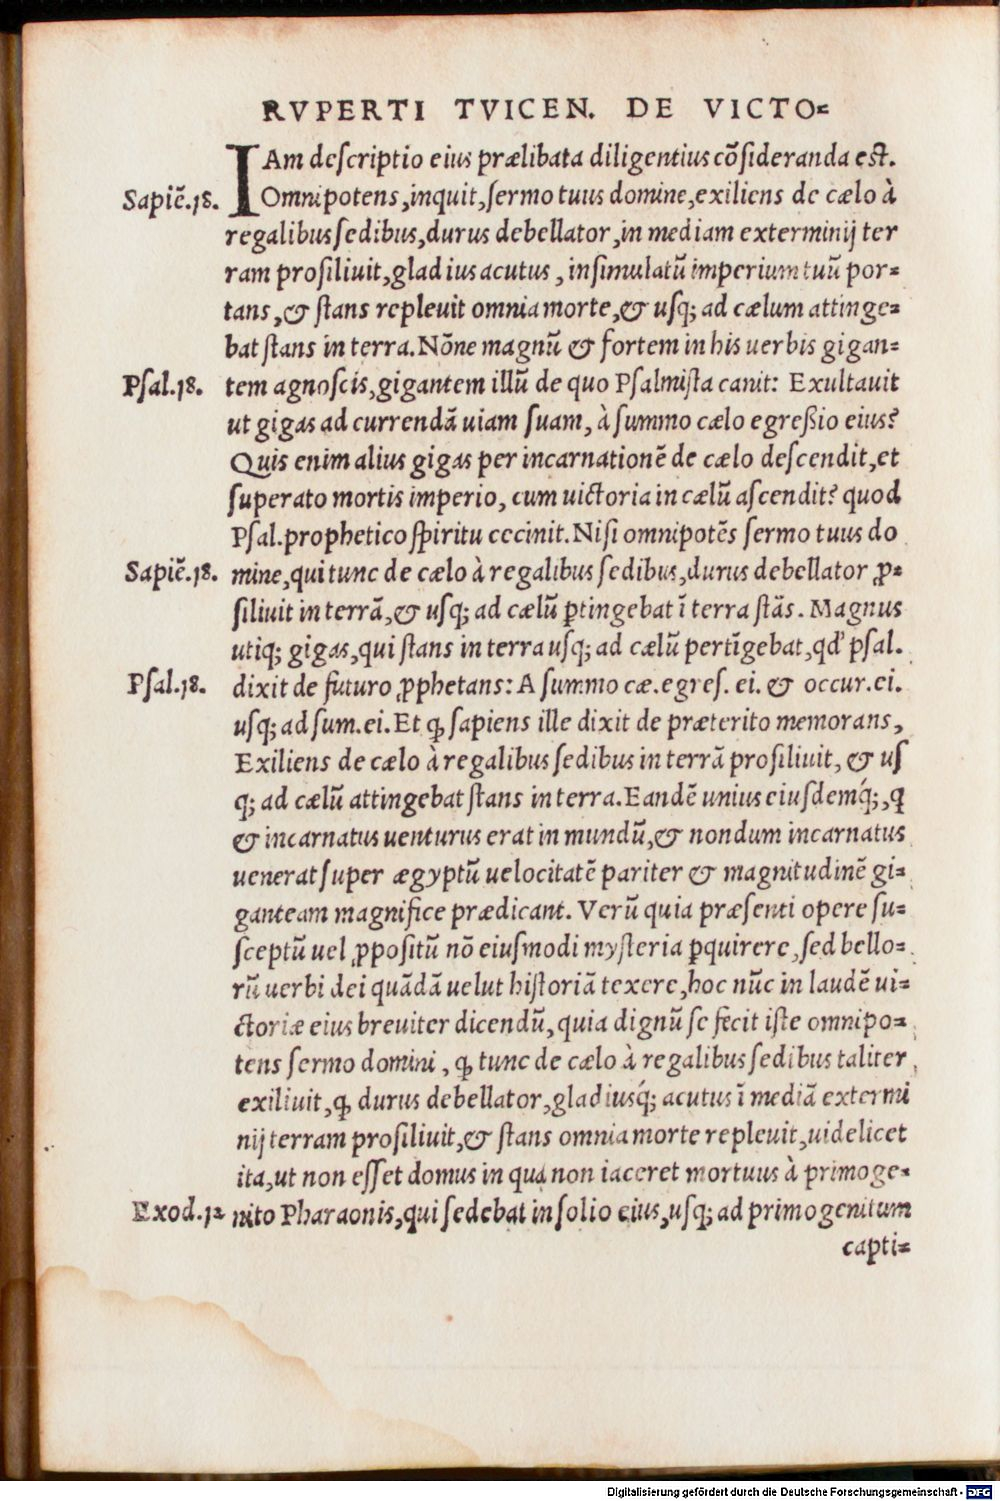 RVPERTI TVICEN. DE VICTO=
IAm descriptio eius prælibata diligentius cõsideranda est.
Sapiẽ.18. Omnipotens, inquit, sermo tuus domine, exiliens de cælo à
regalibus sedibus, durus debellator, in mediam exterminij ter
ram prosiliuit, gladius acutus, insimulatũ imperium tuũ por=
tans, & stans repleuit omnia morte, & usq; ad cælum attinge=
bat stans in terra. Nõne magnũ & fortem in his uerbis gigan=
Psal.18. tem agnoscis, gigantem illũ de quo Psalmista canit: Exultauit
ut gigas ad currendã uiam suam, à summo cælo egreßio eius?
Quis enim alius gigas per incarnationẽ de cælo descendit, et
superato mortis imperio, cum uictoria in cælũ ascendit? quod
Psal. prophetico spiritu cecinit. Nisi omnipotẽs sermo tuus do
Sapiẽ.18. mine, qui tunc de cælo à regalibus sedibus, durus debellator ꝓ=
siliuit in terrã, & usq; ad cælũ ꝑtingebat ĩ terra stãs. Magnus
utiq; gigas, qui stans in terra usq; ad cælũ pertĩgebat, qđ psal.
Psal.18. dixit de futuro ꝓphetans: A summo cæ. egres. ei. & occur. ei.
usq; ad sum. ei. Et ꝙ sapiens ille dixit de præterito memorans,
Exiliens de cælo à regalibus sedibus in terrã prosiliuit, & us
q; ad cælũ attingebat stans in terra. Eandẽ unius eiusdemq́;, ꝗ
& incarnatus uenturus erat in mundũ, & nondum incarnatus
uenerat super ægyptũ uelocitatẽ pariter & magnitudinẽ gi=
ganteam magnifice prædicant. Verũ quia præsenti opere su=
sceptũ uel ꝓpositũ nõ eiusmodi mysteria ꝑquirere, sed bello=
rũ uerbi dei quãdã uelut historiã texere, hoc nũc in laudẽ ui=
ctoriæ eius breuiter dicendũ, quia dignũ se fecit iste omnipo=
tens sermo domini, ꝙ tunc de cælo à regalibus sedibus taliter
exiliuit, ꝙ durus debellator, gladiusq́; acutus ĩ mediã extermi
nij terram prosiliuit, & stans omnia morte repleuit, uidelicet
ita, ut non esset domus in qua non iaceret mortuus à primoge=
Exod.12 nito Pharaonis, qui sedebat in solio eius, usq; ad primogenitum
capti=
Digitalisierung gefördert durch die Deutsche Forschungsgemeinschaft - DFG